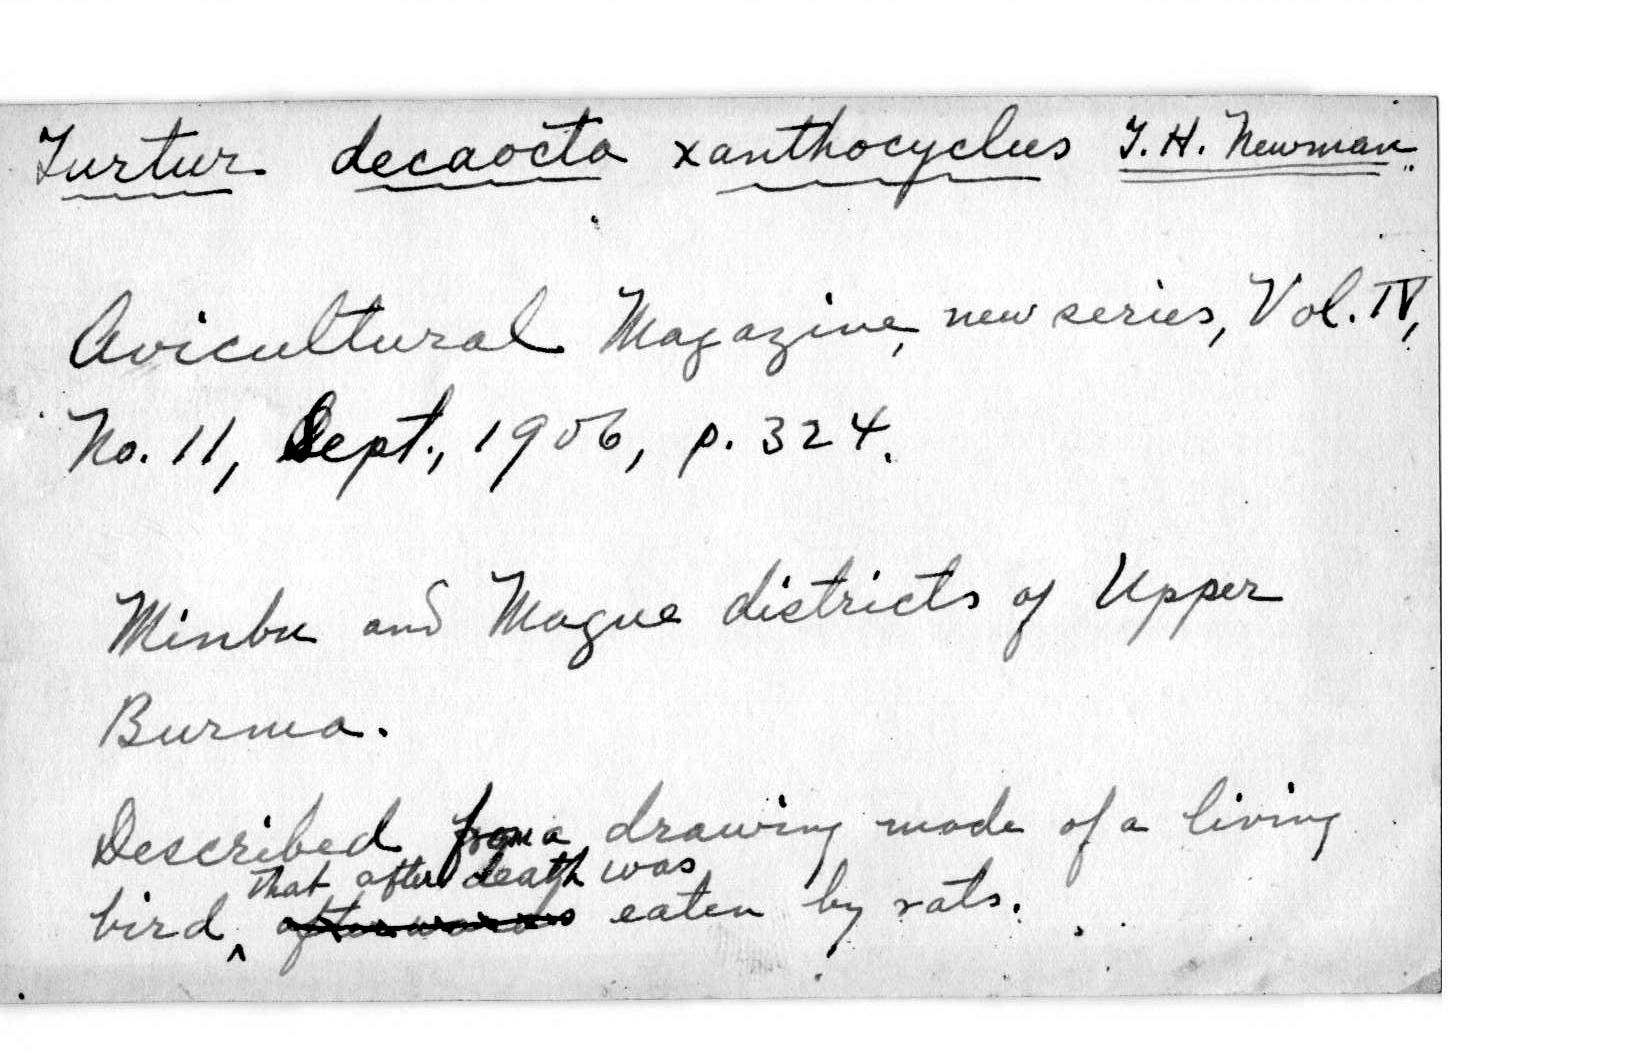 Turtur decaocta xanthocyclus T. H. Newman.
Avicultural Magazine, new series, Vol. IV,
No. 11, Sept., 1906, p. 324.
Minbu and Mague districts of Upper
Burma.
Described from a drawing made of a living
that after death was
bird, afterwards eaten by rats.